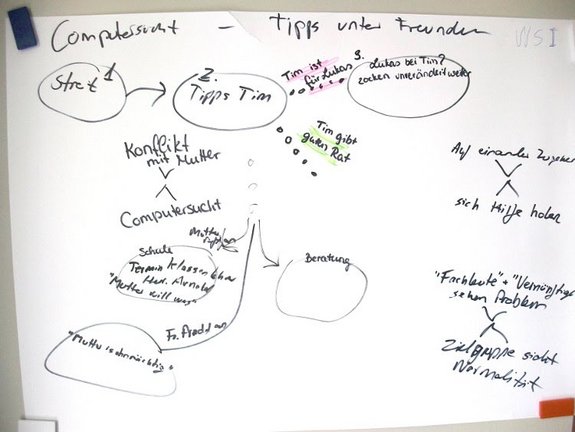 Computersucht – Tipps unter Freunden
WS I
Streit 1
2.
Tipps Tim
Tim ist
für Lukas
3.
Lukas bei Tim?
zocken unverändert weiter
Tim gibt
guten Rat
Konflikt
mit Mutter
Computersucht
Auf einander zugehen
sich Hilfe holen
Mutter
Schule
Termin Klassenlehrer
"Mutter will
Beratung
Fr.
"Mutter
"Fachleute" + "Vernünftige"
sehen Problem
Zielgruppe sieht
Normalität